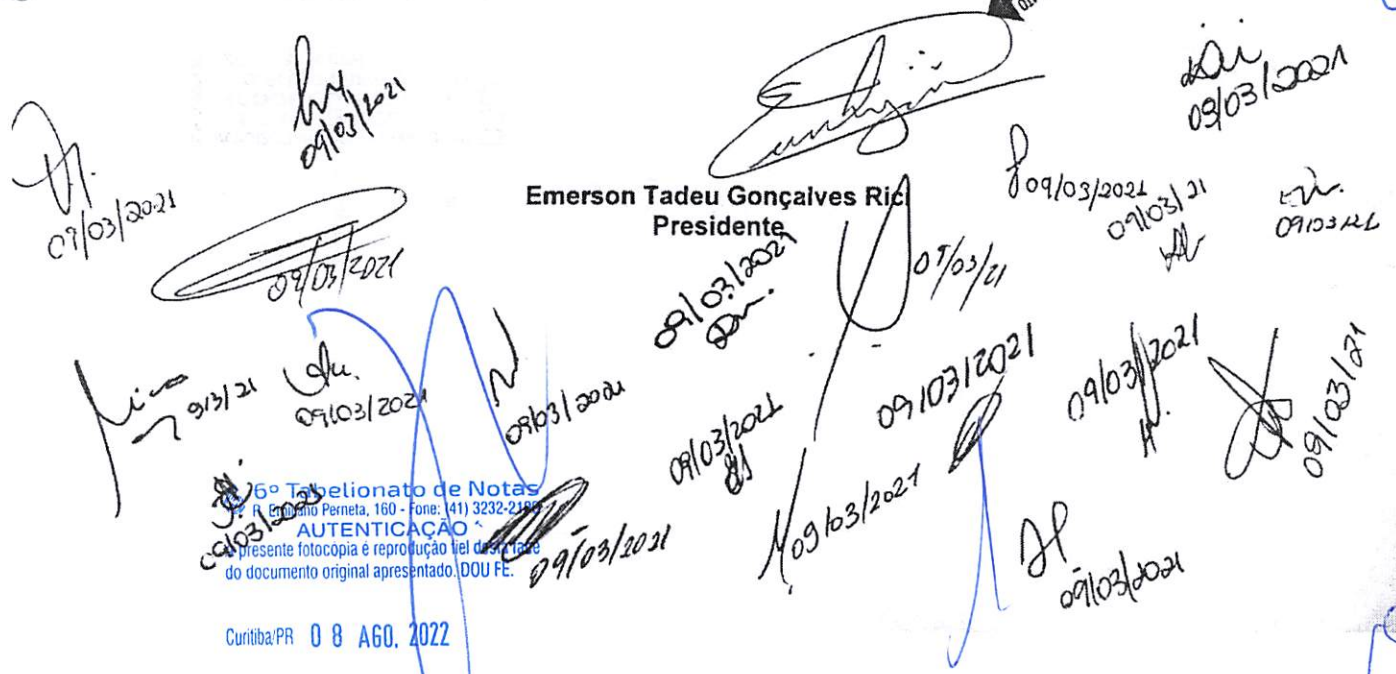 09/03/2021
09/03/2021
09/03/2021
Emerson Tadeu Gonçalves Rici
Presidente
09/03/2021
09/03/21
09/03/21
09/03/2021
09/03/2021
09/03/2021
09/03/21
9/3/21
09/03/2021
09/03/2021
09/03/2021
09/03/2021
09/03/2021
09/03/21
09/03/2021
09/03/2021
09/03/2021
09/03/2021
6º Tabelionato de Notas
R. Emiliano Perneta, 160 - Fone: (41) 3232-21
AUTENTICAÇÃO
presente fotocópia é reprodução fiel desta face
do documento original apresentado. DOU FÉ.
Curitiba/PR 08 AGO. 2022